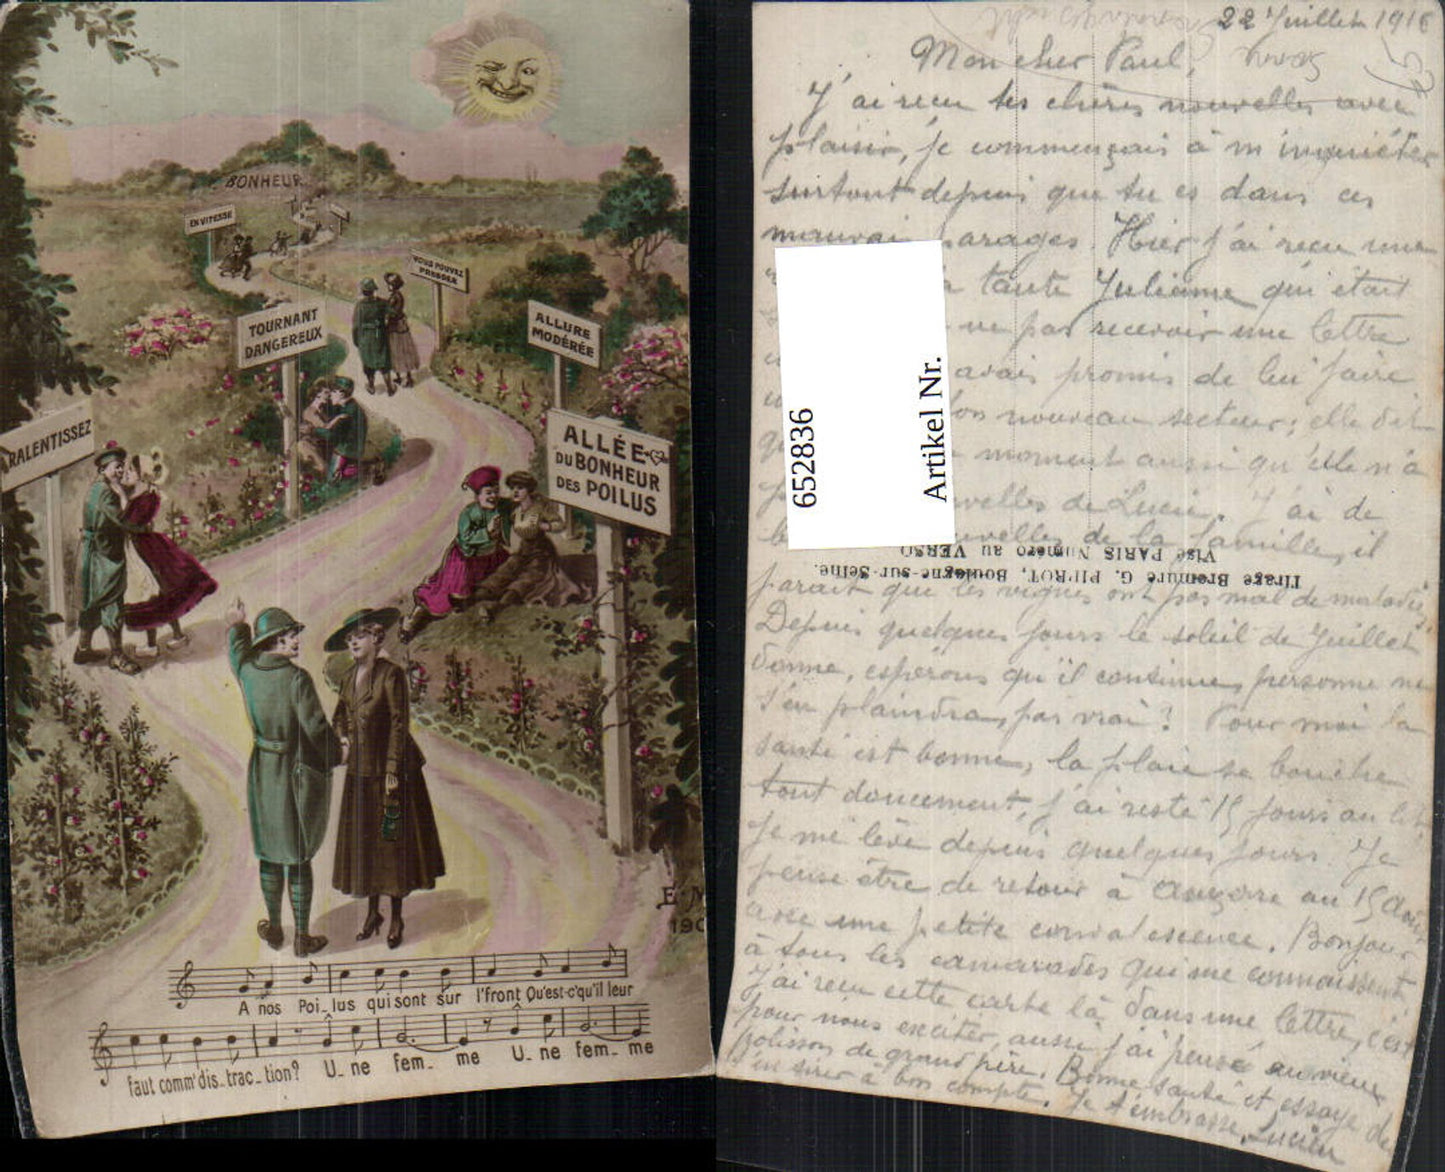 BONHEUR
EN VITESSE
VOUS POUVEZ
PRESSER
TOURNANT
DANGEREUX
ALLURE
MODÉRÉE
RALENTISSEZ
ALLÉE
DU BONHEUR
DES POILUS
E M
190
A nos Poi_lus qui sont sur l'front Qu'est-c'qu'il leur
faut comm' dis_trac_tion? U_ne fem_me U_ne fem_me
22 Juillet 1916
Mon cher Paul,
J'ai recu tes chères nouvelles avec
plaisir, je commençais à m inquiéter
surtout depuis que tu es dans ces
mauvais parages. Hier j'ai recu une
tante Julienne qui était
ne pas recevoir une lettre
avais promis de lui faire
ton nouveau secteur; elle dit
moment aussi qu'elle n'a
nouvelles de Lucien. J'ai de
nouvelles de la famille, il
parait que les vignes ont pas mal de maladies.
Depuis quelques jours le soleil de Juillet
donne, espérons qu'il continue, personne ne
s'en plaindra, pas vrai? Pour moi la
santé est bonne, la plaie se bouche
tout doucement, j'ai resté 15 jours au lit
je me lève depuis quelques jours. Je
pense être de retour à Auxerre au 15 Août
avec une petite convalescence. Bonjour
à tous les camarades qui me connaissent,
J'ai recu cette carte là dans une lettre, c'est
pour nous exciter, aussi j'ai pensé au vieux
polisson de grand père. Bonne santé et essaye de
t'en tirer à bon compte. Je t'embrasse, Lucien
Tirage Bromure G. PIPROT, Boulogne-sur-Seine.
Visé PARIS Numéro au VERSO
652836
Artikel Nr.